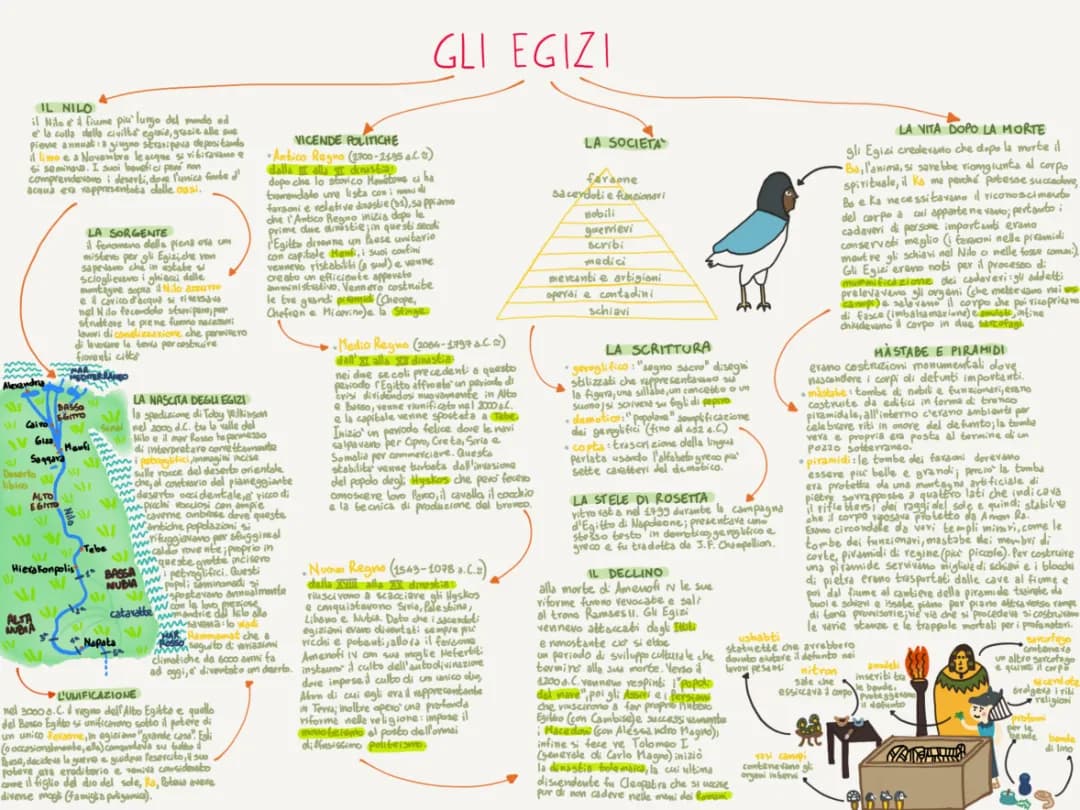 GLI EGIZI
IL NILO
il Nilo è il fiume più lungo del mondo ed
è la culla della civiltà egizia, grazie alle sue
piene annuali: a giugno straripava depositando
il limo e a Novembre le acque si ritiravano e
si seminava. I suoi benefici però non
comprendevano i deserti, dove l'unica fonte d'
acqua era rappresentata dalle oasi.
LA SORGENTE
il fenomeno della piena era un
mistero per gli Egizi, che non
sapevano che in estate si
scioglievano i ghiacci delle
montagne sopra il Nilo azzurro
e il carico d'acqua si riversava
nel Nilo facendolo straripare; per
sfruttare le piene furono necessari
lavori di canalizzazione che permisero
di lavorare la terra per costruire
fiorenti città
MAR
MEDITERRANEO
Alessandria
BASSO
EGITTO
Cairo
Giza
Menfi
Saqqara
Sinai
Deserto
libico
ALTO
EGITTO
Nilo
Tebe
Hierakonpolis
1ª
BASSA
NUBIA
2ª
cataratte
ALTA
NUBIA
3ª
Napata
4ª
5ª
MAR
ROSSO
LA NASCITA DEGLI EGIZI
la spedizione di Toby Wilkinson
nel 2000 d.C. tra la valle del
Nilo e il mar Rosso ha permesso
di interpretare correttamente
i petroglifici, immagini incise
sulle rocce del deserto orientale
che, al contrario del pianeggiante
deserto occidentale, è ricco di
picchi rocciosi con ampie
caverne ombrose dove queste
antiche popolazioni si
rifuggiavano per sfuggire al
caldo rovente; proprio in
queste grotte incisero
i petroglifici. Questi
popoli seminomadi si
spostavano annualmente
con le loro mezzine,
mandrie dal Nilo alla
savana: lo wadi
Hammamat che a
seguito di variazioni
climatiche da 6000 anni fa
ad oggi, e' diventato un deserto.
L'UNIFICAZIONE
nel 3000 a.C. il regno dell'Alto Egitto e quello
del Basso Egitto si unificarono sotto il potere di
un unico Faraone, in egiziano "grande casa". Egli
(o occasionalmente, ella) comandava su tutto il
Paese, decideva la guerra e guidava l'esercito; il suo
potere era ereditario e veniva considerato
come il figlio del dio del sole, Ra. Poteva avere
diverse mogli (famiglia poligamica).
VICENDE POLITICHE
• Antico Regno (2700-2195 a.C.)
dalla III alla VI dinastia:
dopo che lo storico Manetone ci ha
tramandato una lista con i nomi di
faraoni e relative dinastie (31), sappiamo
che l'Antico Regno inizia dopo le
prime due dinastie; in questi secoli
l'Egitto divenne un Paese unitario
con capitale Menfi, i suoi confini
vennero ristabiliti (a sud) e venne
creato un efficiente apparato
amministrativo. Vennero costruite
le tre grandi piramidi (Cheope,
Chefren e Micerino) e la Sfinge.
• Medio Regno (2064-1797 a.C.)
dall'XI alla XII dinastia:
nei due secoli precedenti a questo
periodo l'Egitto affrontò un periodo di
crisi dividendosi nuovamente in Alto
e Basso, venne riunificato nel 2000 a.C.
e la capitale venne spostata a Tebe.
Iniziò un periodo felice dove le navi
salpavano per Cipro, Creta, Siria e
Somalia per commerciare. Questa
stabilità venne turbata dall'invasione
del popolo degli Hyskos che però fecero
conoscere loro l'arco, il cavallo, il cocchio
e la tecnica di produzione del bronzo.
• Nuovo Regno (1543-1078 a.C.)
dalla XVIII alla XX dinastia:
riuscirono a scacciare gli Hyskos
e conquistarono Siria, Palestina,
Libano e Nubia. Dato che i sacerdoti
egiziani erano diventati sempre più
ricchi e potenti, allora il faraone
Amenofi IV con sua moglie Nefertiti
instaurò il culto dell'autodivinazione
dove impose il culto di un unico dio,
Aton di cui egli era il rappresentante
in Terra; inoltre operò una profonda
riforma nella religione: impose il
monoteismo al posto dell'ormai
diffusissimo politeismo.
LA SOCIETA'
faraone
sacerdoti e funzionari
nobili
guerrieri
scribi
medici
mercanti e artigiani
operai e contadini
schiavi
LA SCRITTURA
• geroglifico: "segno sacro" disegni
stilizzati che rappresentavano su
la figura, una sillaba, un concetto o un
suono, si scriveva su fogli di papiro
• demotico: "popolare" semplificazione
dei geroglifici (fino al 452 a.C)
• copta: trascrizione della lingua
parlata usando l'alfabeto greco più
sette caratteri del demotico.
LA STELE DI ROSETTA
ritrovata nel 1799 durante la campagna
d'Egitto di Napoleone; presentava uno
stesso testo in demotico, geroglifico e
greco e fu tradotta da J.F. Champollion.
IL DECLINO
alla morte di Amenofi IV le sue
riforme furono revocate e salì
al trono Ramsesu. Gli Egizi
vennero attaccati dagli Ititi
e nonostante ciò si ebbe
un periodo di sviluppo culturale che
terminò alla sua morte. Verso il
1200 a.C. vennero respinti i "popoli
del mare", poi gli Assiri e i Persiani
che riuscirono a far proprio l'intero
Egitto (con Cambise) e successivamente i
Macedoni (con Alessandro Magno);
infine si fece re Tolomeo I
(generale di Carlo Magno) iniziò
la dinastia tolemaica, la cui ultima
discendente fu Cleopatra che si uccise
pur di non cadere nelle mani dei Romani.
LA VITA DOPO LA MORTE
gli Egizi credevano che dopo la morte il
Ba, l'anima, si sarebbe ricongiunta al corpo
spirituale, il Ka ma perché potesse succedere,
Ba e Ka necessitavano il riconoscimento
del corpo a cui appartenevano; pertanto i
cadaveri di persone importanti erano
conservati meglio (i faraoni nelle piramidi
mentre gli schiavi nel Nilo o nelle fosse comuni).
Gli Egizi erano noti per il processo di
mummificazione dei cadaveri: gli addetti
prelevavano gli organi (che mettevano nei vasi
canopi) e salavano il corpo che poi ricoprivano
di fasce (imbalsamazione) e amuleti, infine
chiudevano il corpo in due sarcofagi.
MÀSTABE E PIRAMIDI
erano costruzioni monumentali dove
nascondere i corpi di defunti importanti.
• màstabe: tombe di nobili e funzionari, erano
costruite da edifici in forma di tronco
piramidale, all'interno c'erano ambienti per
celebrare riti in onore del defunto; la tomba
vera e propria era posta al termine di un
pozzo sotterraneo.
• piramidi: le tombe dei faraoni dovevano
essere più belle e grandi; perciò la tomba
era protetta da una montagna artificiale di
pietre sovrapposte a quattro lati che indicava
il riflettersi dei raggi del sole e quindi stabiliva
che il corpo riposava protetto da Amon Ra.
Erano circondate da veri templi minori, come le
tombe dei funzionari, mastabe dei membri di
corte, piramidi di regine (più piccole). Per costruire
una piramide servivano migliaia di schiavi e i blocchi
di pietra erano trasportati dalle cave al fiume e
poi dal fiume al cantiere della piramide trainate da
buoi e schiavi e issate piano per piano attraverso rampe
di terra provvisorie; via via che si procedeva si costruivano
le varie stanze e le trappole mortali per i profanatori.
ushabti
statuette che avrebbero
dovuto aiutare il defunto nei
lavori pesanti
nitron
sale che
essiccava il corpo
amuleti
inseriti tra
le bende,
proteggevano
il defunto
sarcofago
conteneva
un altro sarcofago
e quindi il corpo
sacerdote
svolgeva i riti
religiosi
profumi
per le
bende
bende
di lino
vasi canopi
contenevano gli
organi interni